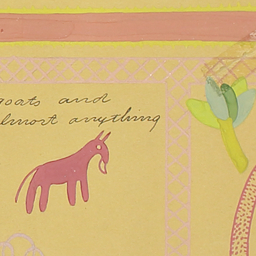 goats and
almost anything